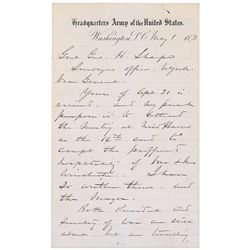 Headquarters Army of the United States.
Washington, D.C. May 1 187
Genl Geo. H. Sharpe
Surveyor office.
Dear General:
Yours of Apr 30 is
received. and my present
purpose is to attend
the Meeting at New Haven
on the 14th and to
accept the proffered
hospitality of
I have
so written them. and
the Mayor.
Both President and
Secretary of War are also
absent. but am